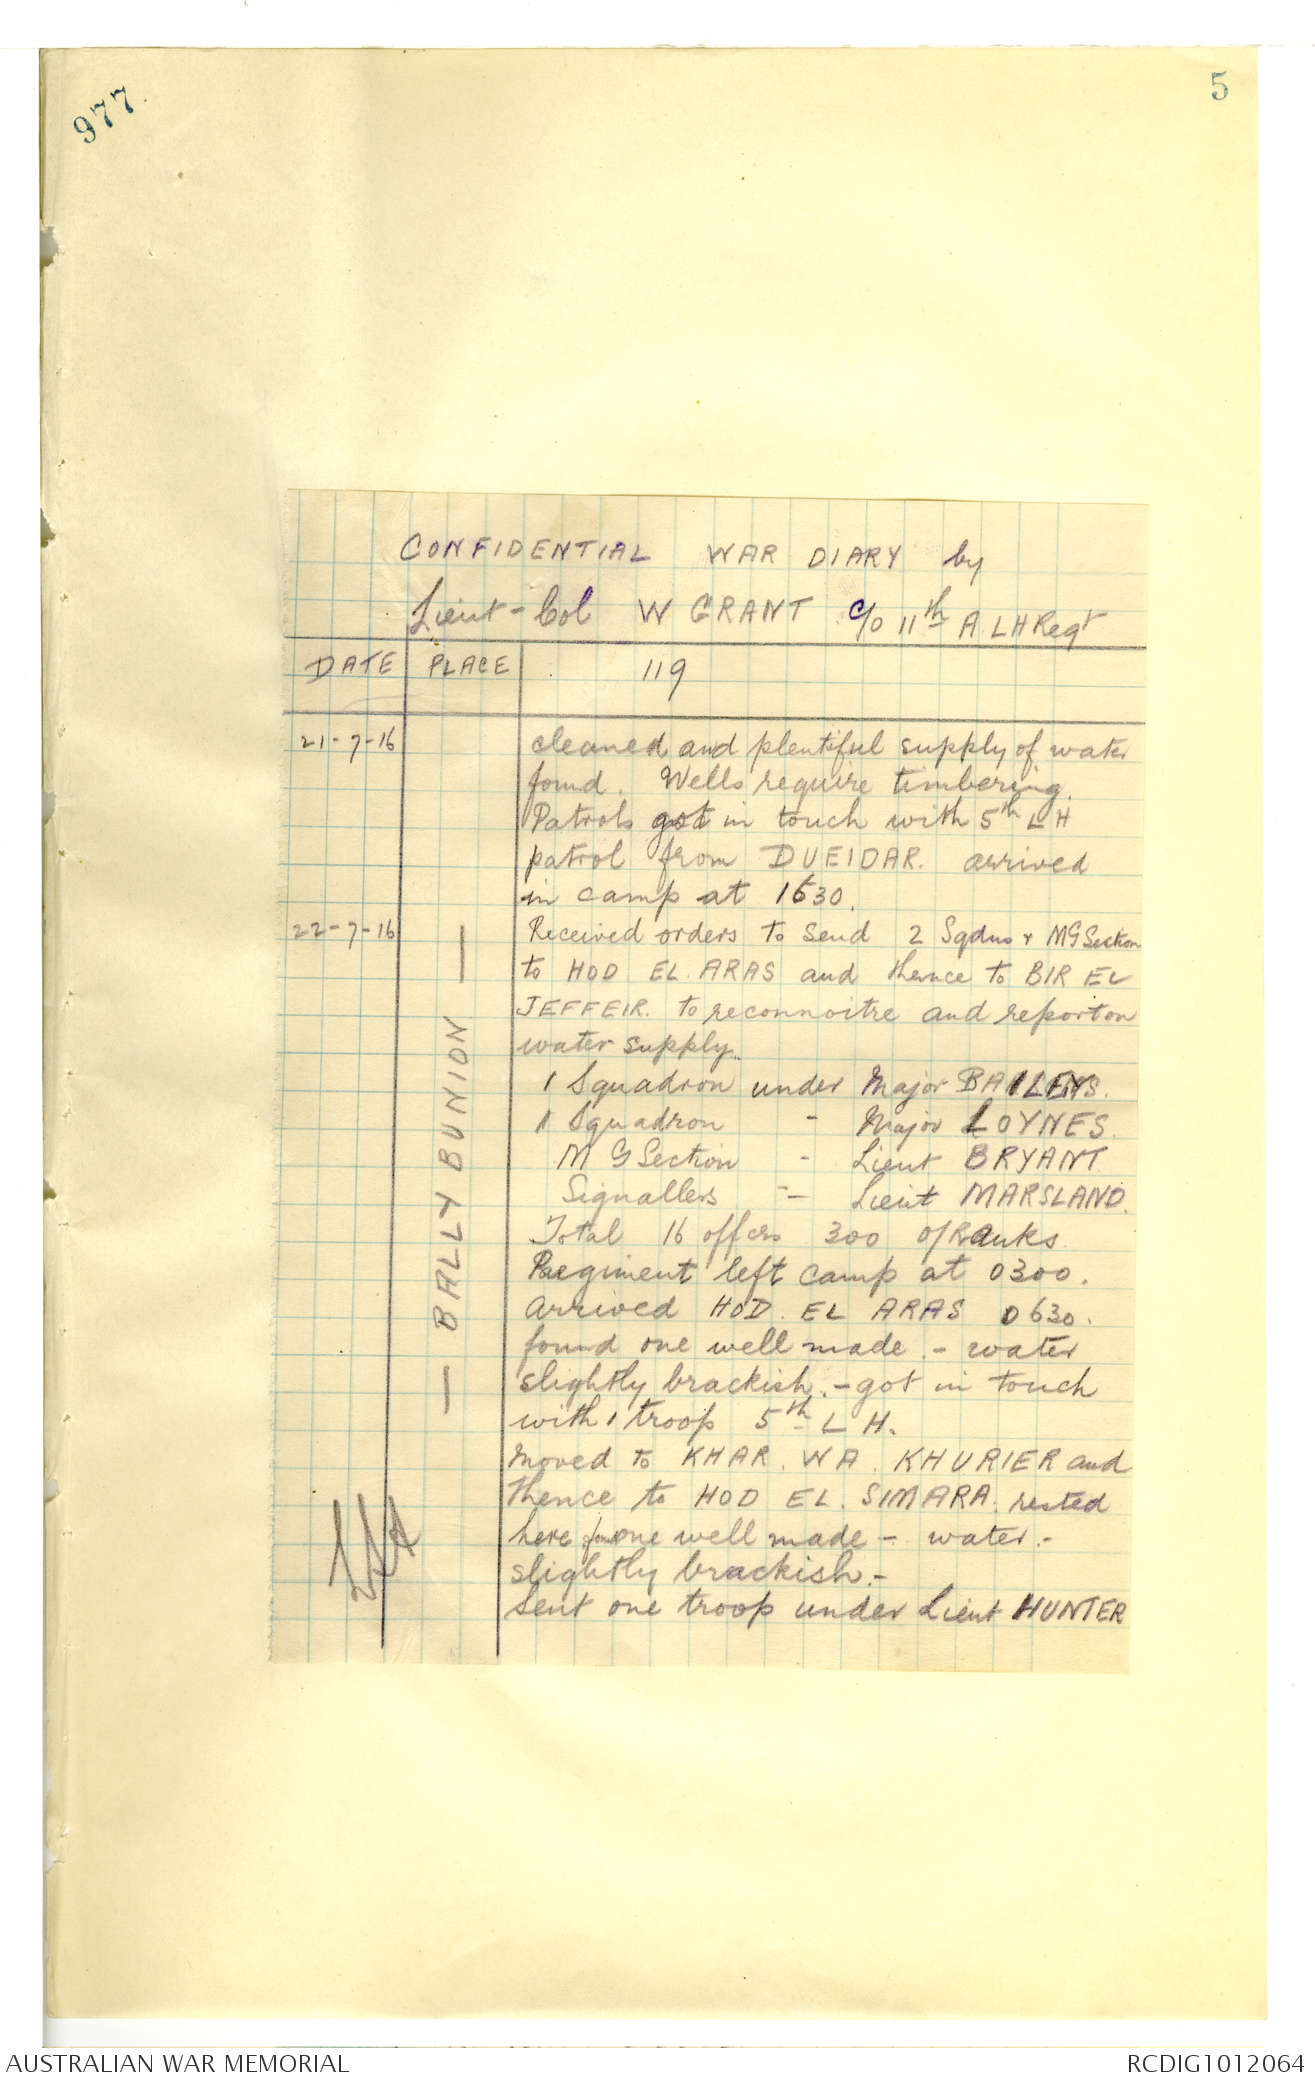 977.
5
CONFIDENTIAL WAR DIARY by
Lieut-Col W GRANT C/O 11th A LH Regt
DATE PLACE 119
21-7-16 cleaned and plentiful supply of water
found. Wells require timbering.
Patrols got in touch with 5th LH
patrol from DUEIDAR. arrived
in camp at 1630.
22-7-16 Received orders to send 2 Sqdns + MG Section
to HOD EL ARAS and thence to BIR EL
JEFFEIR. to reconnoitre and report on
water supply.
1 Squadron under Major BAILEYS.
1 Squadron - Major LOYNES.
M G Section - Lieut BRYANT
Signallers - Lieut MARSLAND.
Total 16 offcrs 300 O/Ranks
Regiment left camp at 0300.
arrived HOD. EL ARAS 0630.
found one well made. - water
slightly brackish. - got in touch
with 1 troop 5th L H.
Moved to KHAR. WA. KHURIER and
thence to HOD EL. SIMARA. rested
here found one well made - water. -
slightly brackish. -
Sent one troop under Lieut HUNTER
— BALLYBUNION —
AUSTRALIAN WAR MEMORIAL
RCDIG1012064